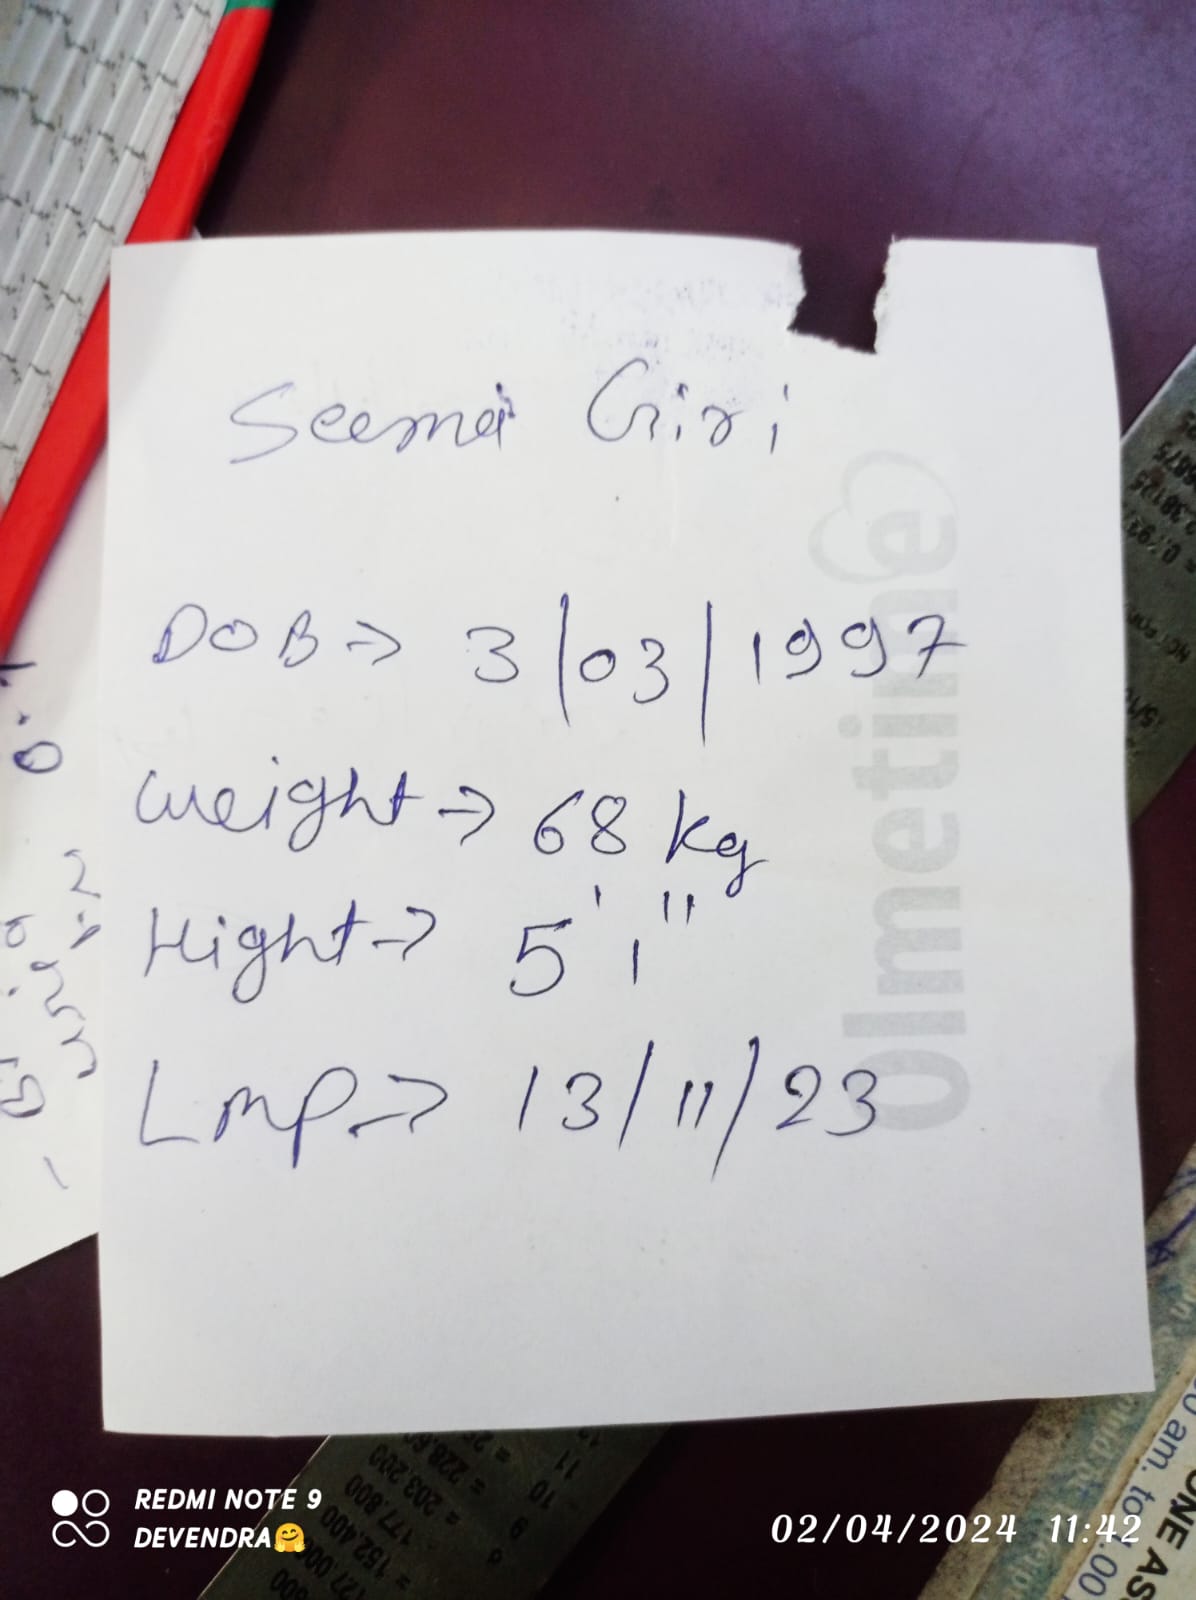 Seema Giri
DOB → 3/03/1997
Weight → 68 kg
Hight → 5' 1"
Lmp → 13/11/23
Olmetime
REDMI NOTE 9
DEVENDRA🤗
02/04/2024 11:42